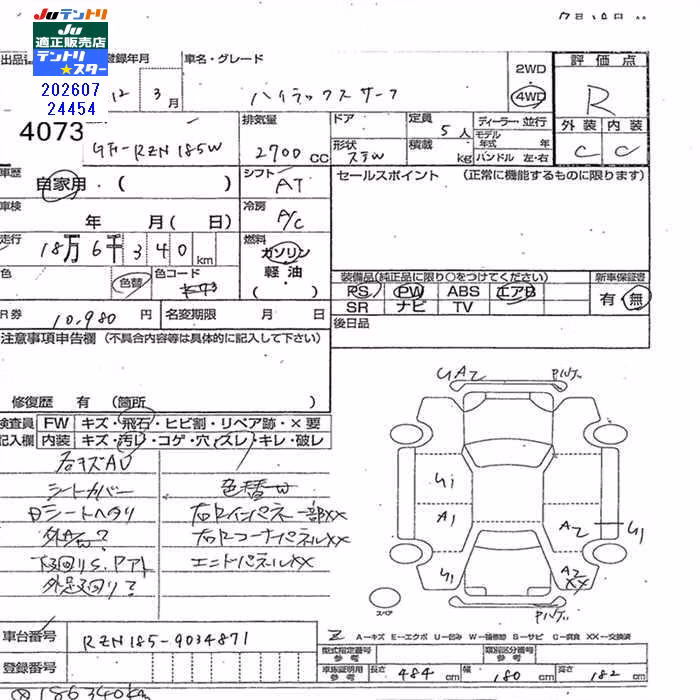 Juテントリ
Ju
適正販売店
テントリ
★スター
202607
24454
登録年月
車名・グレード
12 3月
ハイラックスサーフ
2WD
4WD
評価点
R
外装 内装
C C
4073
GF-RZN185W
排気量
2700 CC
ドア
形状
ステW
定員
5人
積載
kg
ディーラー・並行
モデル
年式 年
ハンドル 左・右
車歴
自家用・( )
シフト
AT
セールスポイント (正常に機能するものに限ります)
車検
年 月( 日)
冷房
A/C
走行
18万6千340km
燃料
ガソリン
軽油
( )
色
色替
色コード
装備品(純正品に限り○をつけてください)
新車保証書
PS PW ABS エアB
SR ナビ TV
有・無
R券
10,980円
名変期限 月 日
後日品
注意事項申告欄 (不具合内容等は具体的に記入して下さい)
修復歴 有 (箇所 )
検査員
記入欄
FW キズ・飛石・ヒビ割・リペア跡・×要
内装 キズ・汚レ・コゲ・穴・スレ・キレ・破レ
シートカバー
色替W
シートヘタリ
右リインパネ一部XX
右リコーナーパネルXX
下回りS、Pアト
エンドパネルXX
UA2
U1
A1
A2
U1
U1
A2
XX
スペア
車台番号
RZN185-9034871
登録番号
A-キズ E-エクボ U-凹み W-補修跡 S-サビ C-腐食 XX-交換済
型式指定番号
参考
類別区分番号
参考
車庫証明用
参考
長さ 484 cm
幅 180 cm
高さ 182 cm
186340km